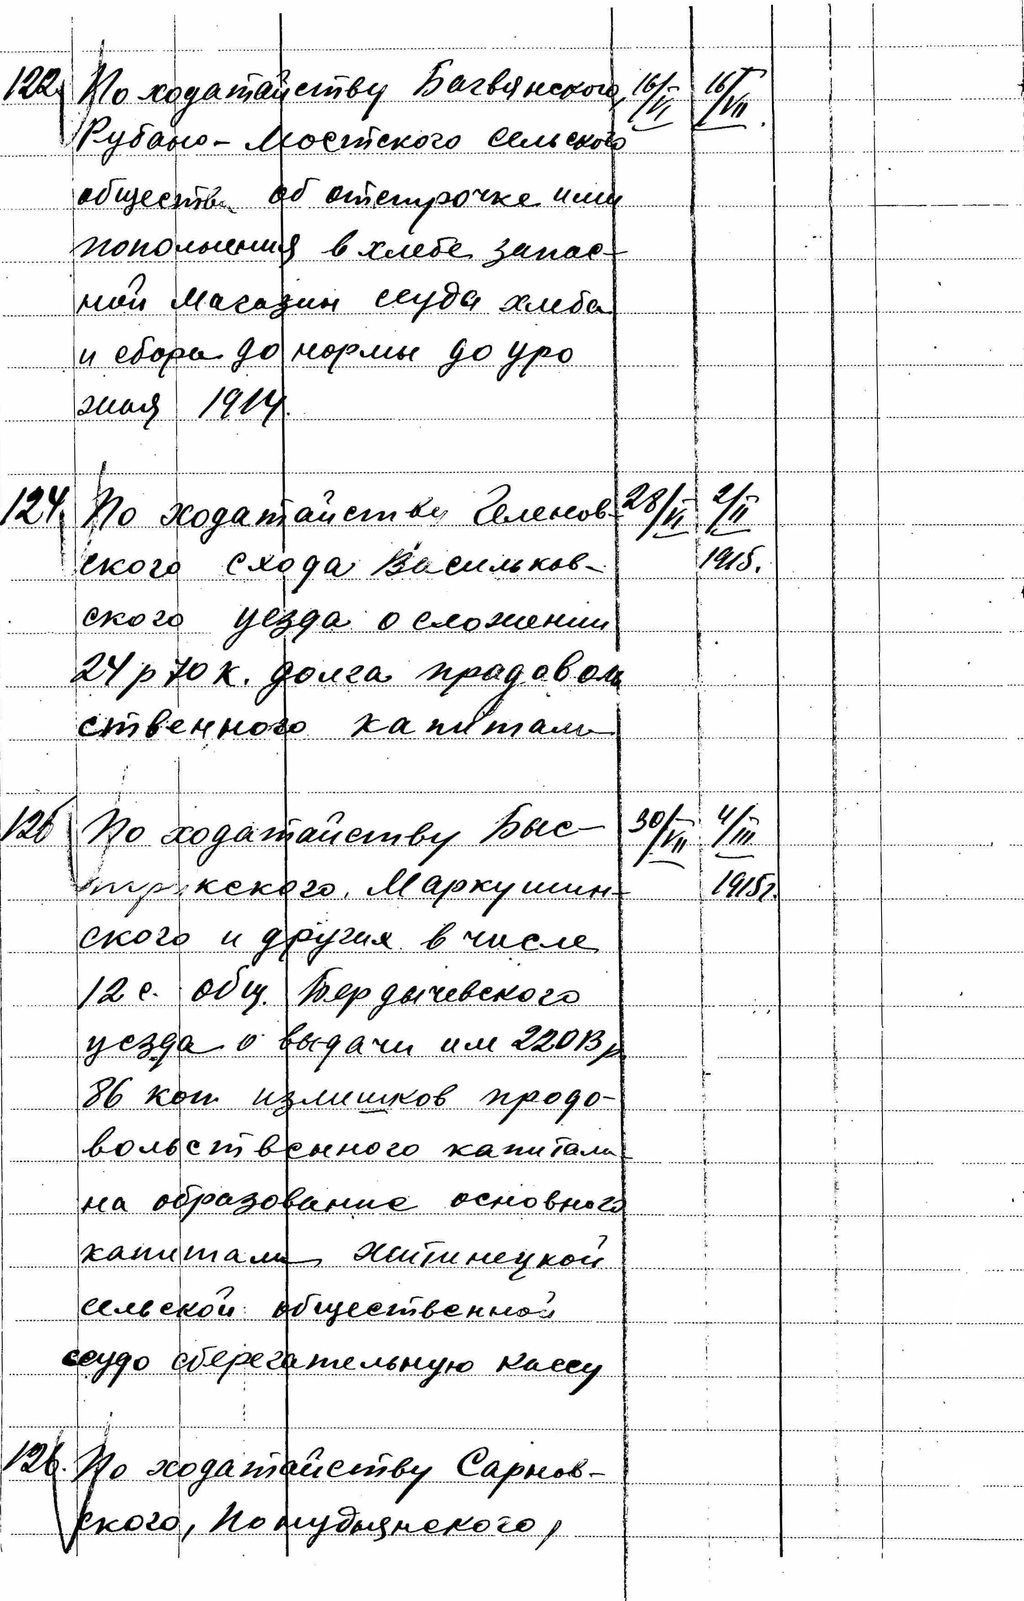 122. По ходатайству Багвянского, 16/VI 16/VII.
Рубано-Мостского сельского
обществ об отстрочке ими
пополнения в хлебо запас-
ной магазин ссуда хлеба
и сбора до нормы до уро
жая 1914.
124. По ходатайству Геленов- 28/VI 2/II
ского схода Васильков- 1915.
ского уезда о сложении
24 р 70 к. долга прадаволь
ственного капитала
125 По ходатайству Быс- 30/VII 4/III
кского, Маркушин- 1915 г.
ского и других в числе
12 с. общ. Бердычевского
уезда о выдачи им 2203 р
86 коп излишков продо-
вольственного капитала
на образование основного
капитала Житинецкой
сельской общественной
ссудо сберегательную кассу
126. По ходатайству Сарнов-
ского,